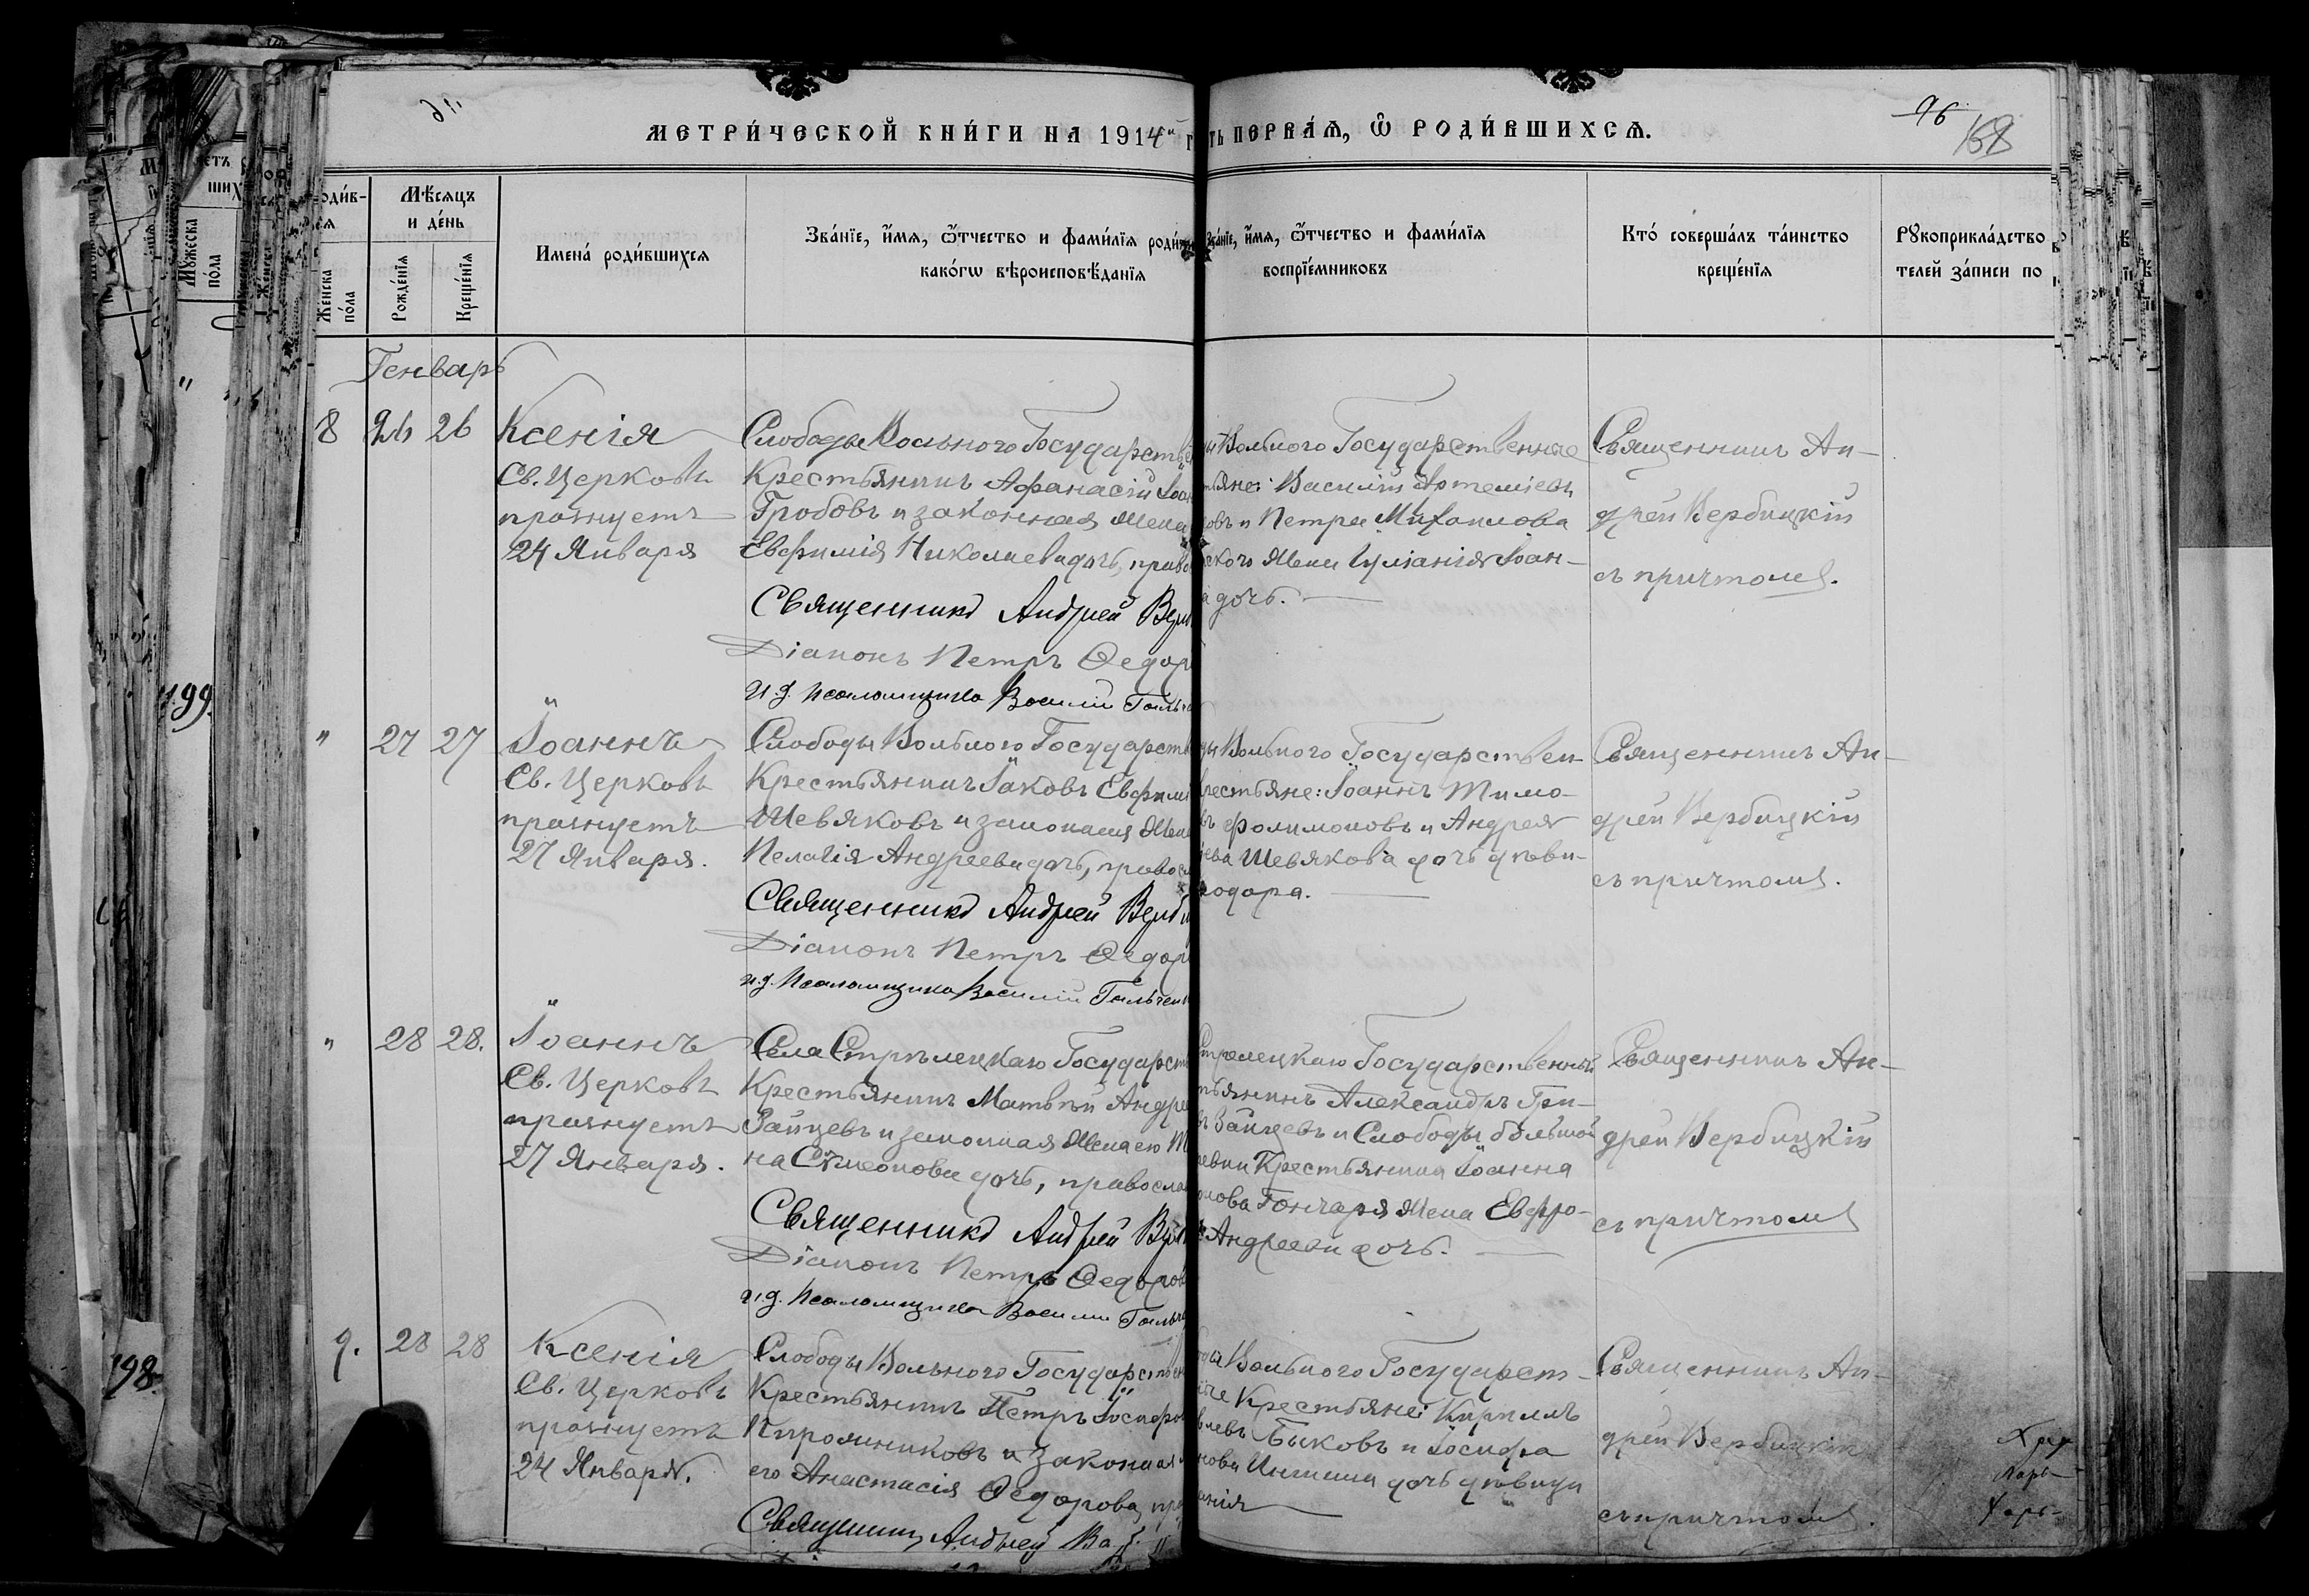 МЕТРИ́ЧЕСКОЙ КНИ́ГИ НА 1914й г
ть ПЕРВА́Я, Ѽ РОДИ́ВШИХСЯ.
96
168
Мѣ́сяцъ
и де́нь
Же́нска
по́ла
Рожде́нія
Креще́нія
Имена́ роди́вшихся
Зва́ніе, и́мя, ѻ́тчество и фами́лія роди
како́гѡ вѣроисповѣ́данія
Зва́ніе, и́мя, ѻ́тчество и фами́лія
воспріе́мниковъ
Кто́ соверша́лъ та́инство
креще́нія
Рꙋкоприкла́дство
телей за́писи по
Генварь
8 26 26 Ксенія
Св. Церковь
празнуетъ
24 Января
Слободы Вольного Государствен
Крестьянинъ Афанасій Іоан
Гробовъ и законная жена
Евфимія Николаева дочь, право
Священникъ Андрей Верб
Діаконъ Петръ Ѳедор
И.д. Псаломщика Василій Гальч
ы Вольного Государственные
тьяне: Василій Артеміевъ
овъ и Петра Михаилова
ского жена Іуліанія Іоан-
а дочь.
Священникъ Ан-
дрей Вербицкій
съ причтомъ.
" 27 27 Іоаннъ
Св. Церковь
празнуетъ
27 Января.
Слободы Вольного Государств
Крестьянинъ Іаковъ Евфимі
Шевяковъ и законная жена
Пелагія Андреева дочь, правос
Священникъ Андрей Верби
Діаконъ Петръ Ѳедор
и.д. Псаломщика Василій Гальчен
ды Вольного Государствен-
рестьяне: Іоаннъ Тимо-
въ Филимоновъ и Андрея
ева Шевякова дочь дѣви-
ѳодора.
Священникъ Ан-
дрей Вербицкій
съ причтомъ.
" 28 28. Іоаннъ
Св. Церковь
празнуетъ
27 Января.
Села Стрѣлецкаго Государст
Крестьянинъ Матвѣй Андре
Зайцевъ и законная жена его Т
на Сѷмеонова дочь, правосла
Священникъ Андрей Верб
Діаконъ Петръ Ѳедоров
и.д. Псаломщика Василій Гальч
Стрелецкаго Государственный
тьянинъ Александръ Гри-
въ Зайцевъ и Слободы большой
Крестьянина Іоанна
нова Гончаря жена Евфро-
Андреева дочь.
Священникъ Ан-
дрей Вербицкій
съ причтомъ
9. 28 28 Ксенія
Св. Церковь
празнуетъ
24 Января.
Слободы Вольного Государствен
Крестьянинъ Петръ Іосифов
и законная
его Анастасія Ѳедорова, пра
Священникъ Андрей Ве
ды Вольного Государст-
ные Крестьяне: Кириллъ
влевъ Быковъ и Іосифа
нова дочь дѣвица
анія
Священникъ Ан-
дрей Вербицкій
съ причтомъ.
199.
198.